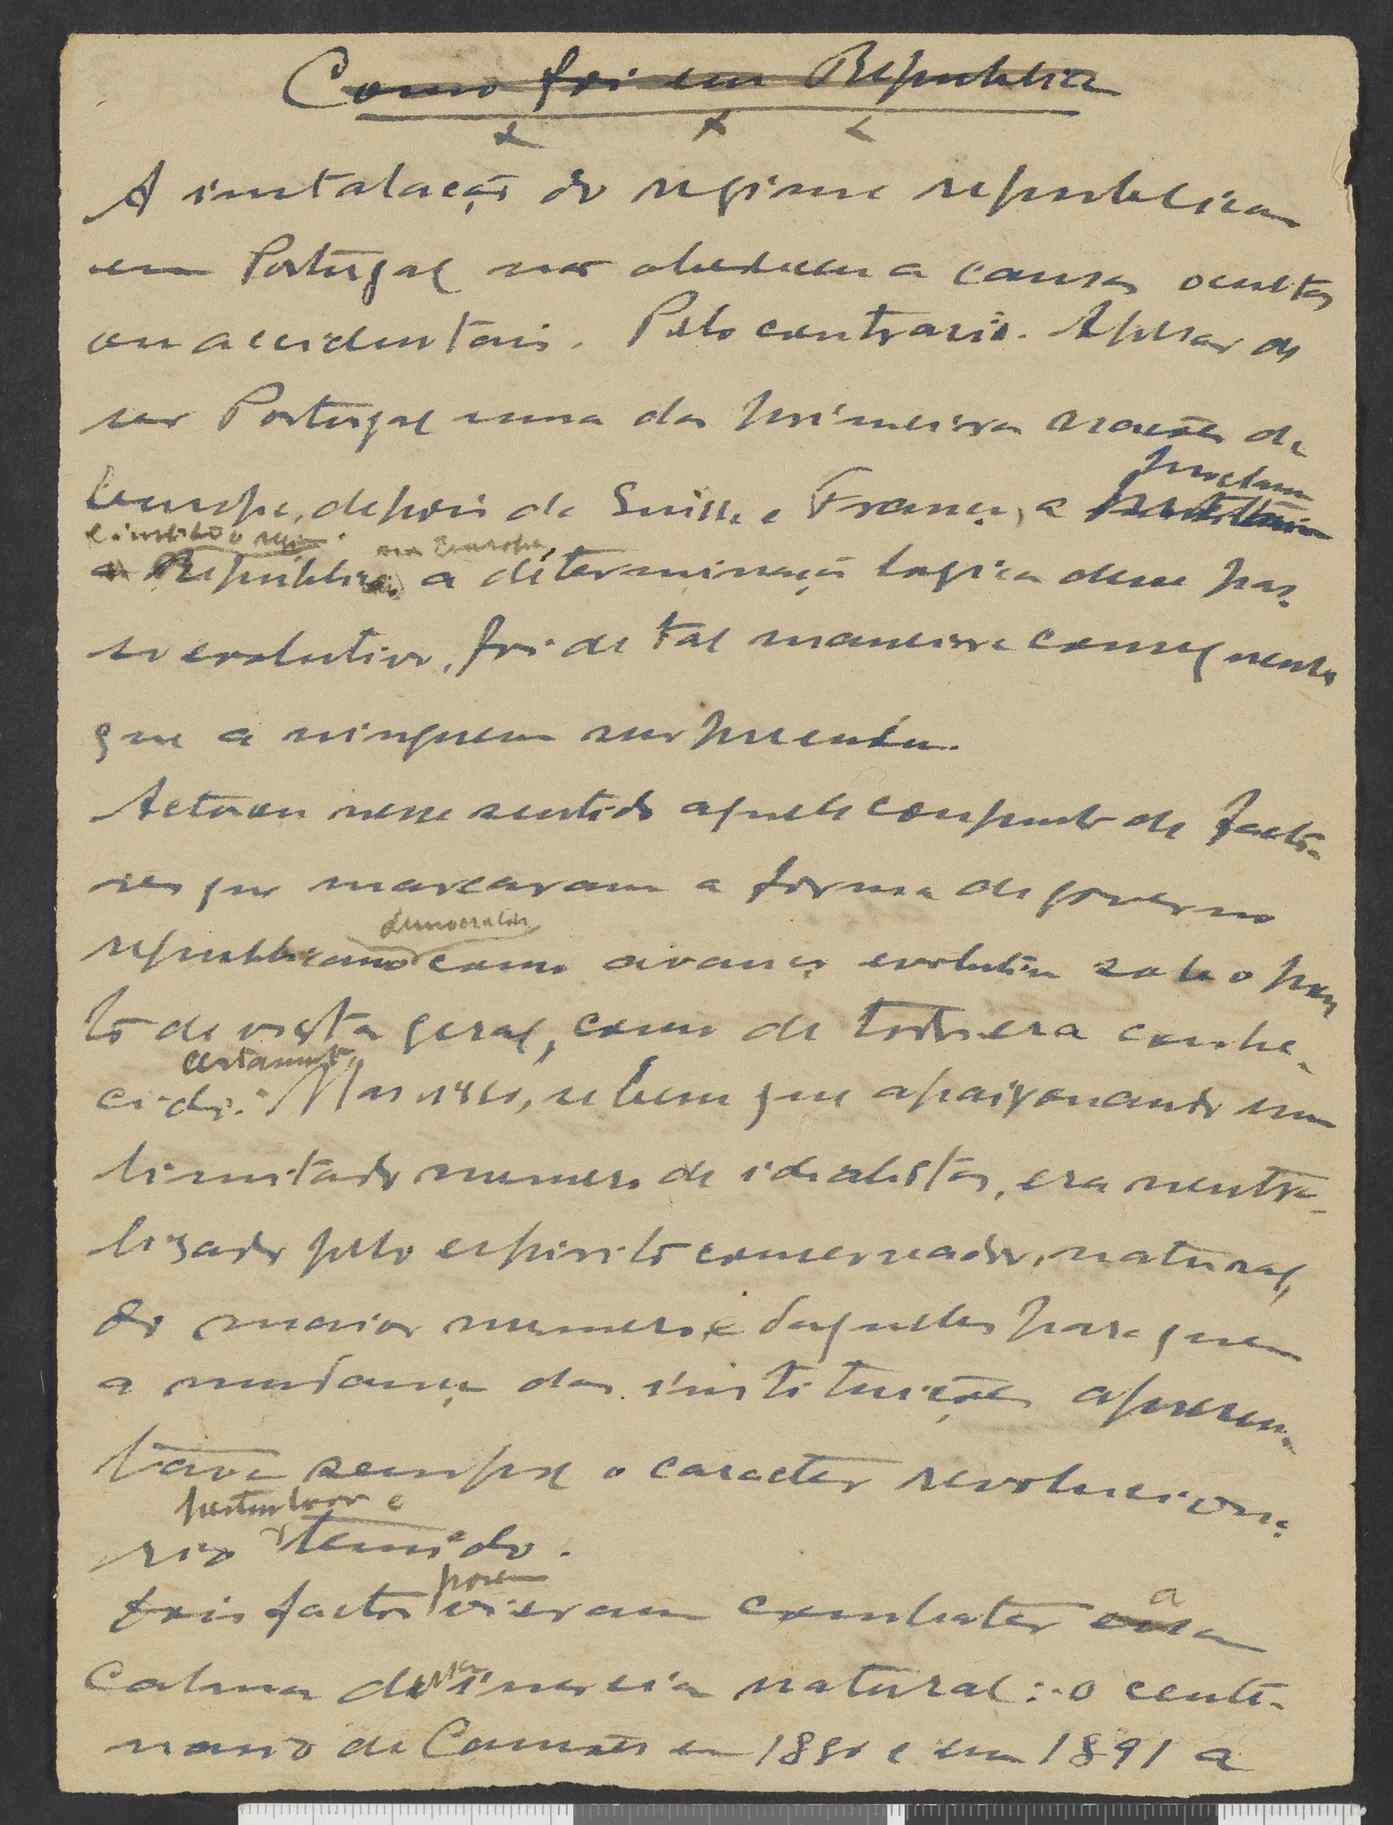 Como foi em Republica
A instalação do regime republicano
em Portugal não obedeceu a causas ocultas
ou accidentais. Pelo contrario. Apesar de
ser Portugal uma das primeiras nações da
proclamar
Europa, depois da Suissa e França, a
na Europa,
a Republica a determinação logica desse pas-
so evolutivo, foi de tal maneira consequente
que a ninguem surpreendeu.
Actuou nesse sentido aquele conjunto de facto-
res que marcaram a forma de governo
democratica
republicano como avanço evolutivo sob o pon
to de vista geral, como de todos era conhe-
certamente
cido. Mas isso, se bem que apaixonando um
limitado numero de idealistas, era neutra-
lisado pelo espirito conservador, natural,
do maior numero e daqueles para quem
a mudança das instituições apresen-
tava sempre o caracter revolucioná-
perturbador e
rio temido.
porem
Dois factos vieram combater essa a
calma da inercia natural: o cente-
nario de Camões em 1880 e em 1891 a